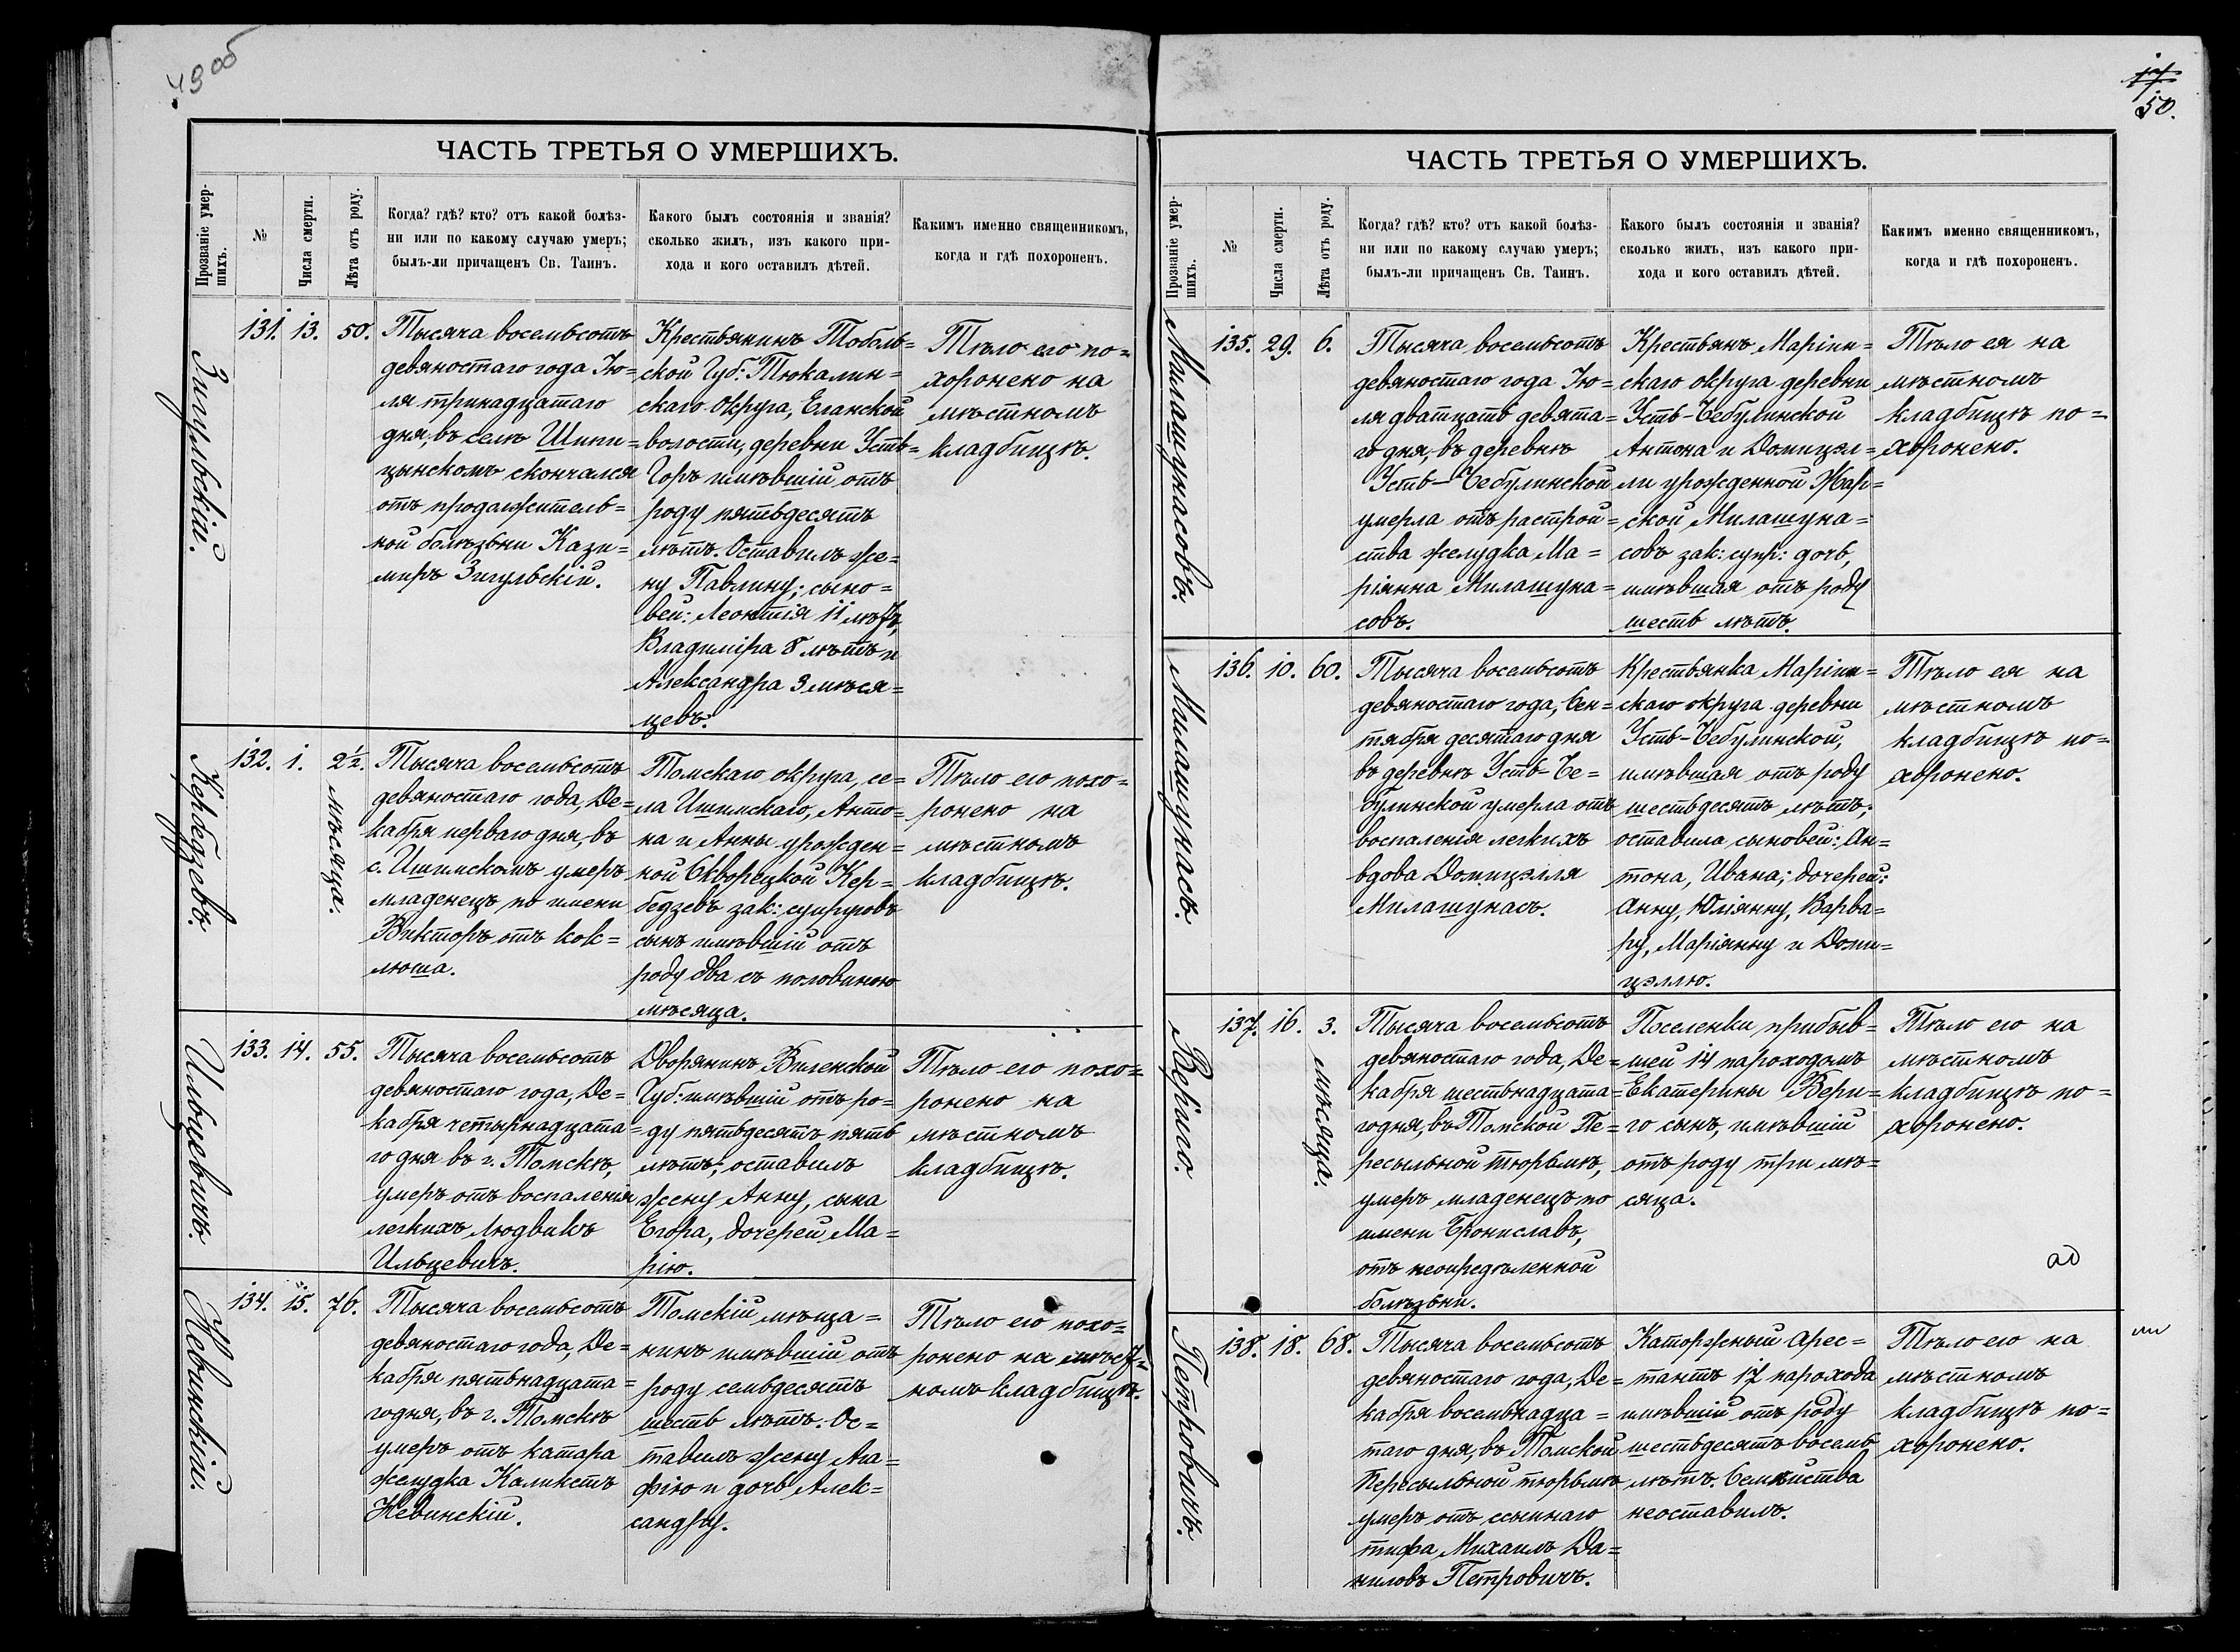 49 об
ЧАСТЬ ТРЕТЬЯ О УМЕРШИХЪ.
Прозваніе умер-
шихъ.
№
Числа смерти.
Лѣта отъ роду.
Когда? гдѣ? кто? отъ какой болѣз-
ни или по какому случаю умеръ;
былъ-ли причащенъ Св. Таинъ.
Какого былъ состоянія и званія?
сколько жилъ, изъ какого при-
хода и кого оставилъ дѣтей.
Какимъ именно священникомъ,
когда и гдѣ похороненъ.
Зигульскій.
131. 13. 50.
Тысяча восемьсотъ
девяностаго года Ію=
ля тринадцатаго
дня, въ селѣ Шипи=
цынскомъ скончался
отъ продолжитель=
ной болѣзни Кази=
миръ Зигульскій.
Крестьянинъ Тоболь=
ской Губ: Тюкалин=
скаго округа, Еланской
волости, деревни Усть=
Горъ имѣвшій отъ
роду пятьдесятъ
лѣтъ. Оставилъ же=
ну Павлину; сыно=
вей: Леонтія 11 лѣтъ,
Владиміра 8 лѣтъ и
Александра 3 мѣся=
цевъ.
Тѣло его по=
хоронено на
мѣстномъ
кладбищѣ.
Кербедзевъ.
132. 1. 2½. мѣсяца.
Тысяча восемьсотъ
девяностаго года, Де=
кабря перваго дня, въ
с. Ишимскомъ умеръ
младенецъ по имени
Викторъ отъ кок=
люша.
Томскаго округа, се=
ла Ишимскаго, Анто=
на и Анны урожден=
ной Скворецкой Кер=
бедзевъ зак: супруговъ
сынъ имѣвшій отъ
роду два съ половиною
мѣсяца.
Тѣло его похо=
ронено на
мѣстномъ
кладбищѣ.
Ильцевичъ.
133. 14. 55.
Тысяча восемьсотъ
девяностаго года, Де=
кабря четырнадцата=
го дня въ г. Томскѣ,
умеръ отъ воспаленія
легкихъ Людвикъ
Ильцевичъ.
Дворянинъ Виленской
Губ: имѣвшій отъ ро=
ду пятьдесятъ пять
лѣтъ; оставилъ
жену Анну, сына
Егора, дочерей Ма=
рію.
Тѣло его похо=
ронено на
мѣстномъ
кладбищѣ.
Невинскій.
134. 15. 76.
Тысяча восемьсотъ
девяностаго года, Де=
кабря пятьнадцата=
го дня, въ г. Томскѣ
умеръ отъ катара
желудка Каликстъ
Невинскій.
Томскій мѣща=
нинъ имѣвшій отъ
роду семьдесятъ
шесть лѣтъ. Ос=
тавилъ жену Ага=
фію и дочь Алек=
сандру.
Тѣло его похо=
ронено на мѣст=
номъ кладбищѣ.
17
50.
ЧАСТЬ ТРЕТЬЯ О УМЕРШИХЪ.
Прозваніе умер-
шихъ.
№
Числа смерти.
Лѣта отъ роду.
Когда? гдѣ? кто? отъ какой болѣз-
ни или по какому случаю умеръ;
былъ-ли причащенъ Св. Таинъ.
Какого былъ состоянія и званія?
сколько жилъ, изъ какого при-
хода и кого оставилъ дѣтей.
Какимъ именно священникомъ,
когда и гдѣ похороненъ.
Милашунасовъ.
135. 29. 6.
Тысяча восемьсотъ
девяностаго года Ію=
ля дватцать девята=
го дня, въ деревнѣ
Усть-Чебулинской
умерла отъ растрой=
ства желудка Ма=
ріянна Милашуна=
совъ.
Крестьянъ Маріин=
скаго округа деревни
Усть-Чебулинской
Антона и Домицэл=
ли урожденной Жар=
ской Милашуна=
совъ зак: супр: дочь,
имѣвшая отъ роду
шесть лѣтъ.
Тѣло ея на
мѣстномъ
кладбищѣ по=
хоронено.
Милашунасъ.
136. 10. 60.
Тысяча восемьсотъ
девяностаго года, Сен=
тября десятаго дня
въ деревнѣ Усть-Че=
булинской умерла отъ
воспаленія легкихъ
вдова Домицэлля
Милашунасъ.
Крестьянка Маріин=
скаго округа деревни
Усть-Чебулинской,
имѣвшая отъ роду
шестьдесятъ лѣтъ;
оставила сыновей: Ан=
тона, Ивана; дочерей:
Анну, Юліянну, Варва=
ру, Маріянну и Доми=
цэллю.
Тѣло ея на
мѣстномъ
кладбищѣ по=
хоронено.
Вериго.
137. 16. 3. мѣсяца.
Тысяча восемьсотъ
девяностаго года, Де=
кабря шестьнадцата=
го дня, въ Томской Пе=
ресыльной тюрьмѣ,
умеръ младенецъ по
имени Брониславъ,
отъ неопредѣленной
болѣзни.
Поселенки прибыв=
шей 14 пароходомъ
Екатерины Вери=
го сынъ, имѣвшій
отъ роду три мѣ=
сяца.
Тѣло его на
мѣстномъ
кладбищѣ по=
хоронено.
Петровичъ.
138. 18. 68.
Тысяча восемьсотъ
девяностаго года, Де=
кабря восемьнадца=
таго дня, въ Томской
Пересыльной тюрьмѣ
умеръ отъ ссыпнаго
тифа Михаилъ Да=
ниловъ Петровичъ.
Каторжный арес=
тантъ 17 парохода
имѣвшій отъ роду
шестьдесятъ восемь
лѣтъ. Семейства
неоставилъ.
Тѣло его на
мѣстномъ
кладбищѣ по=
хоронено.